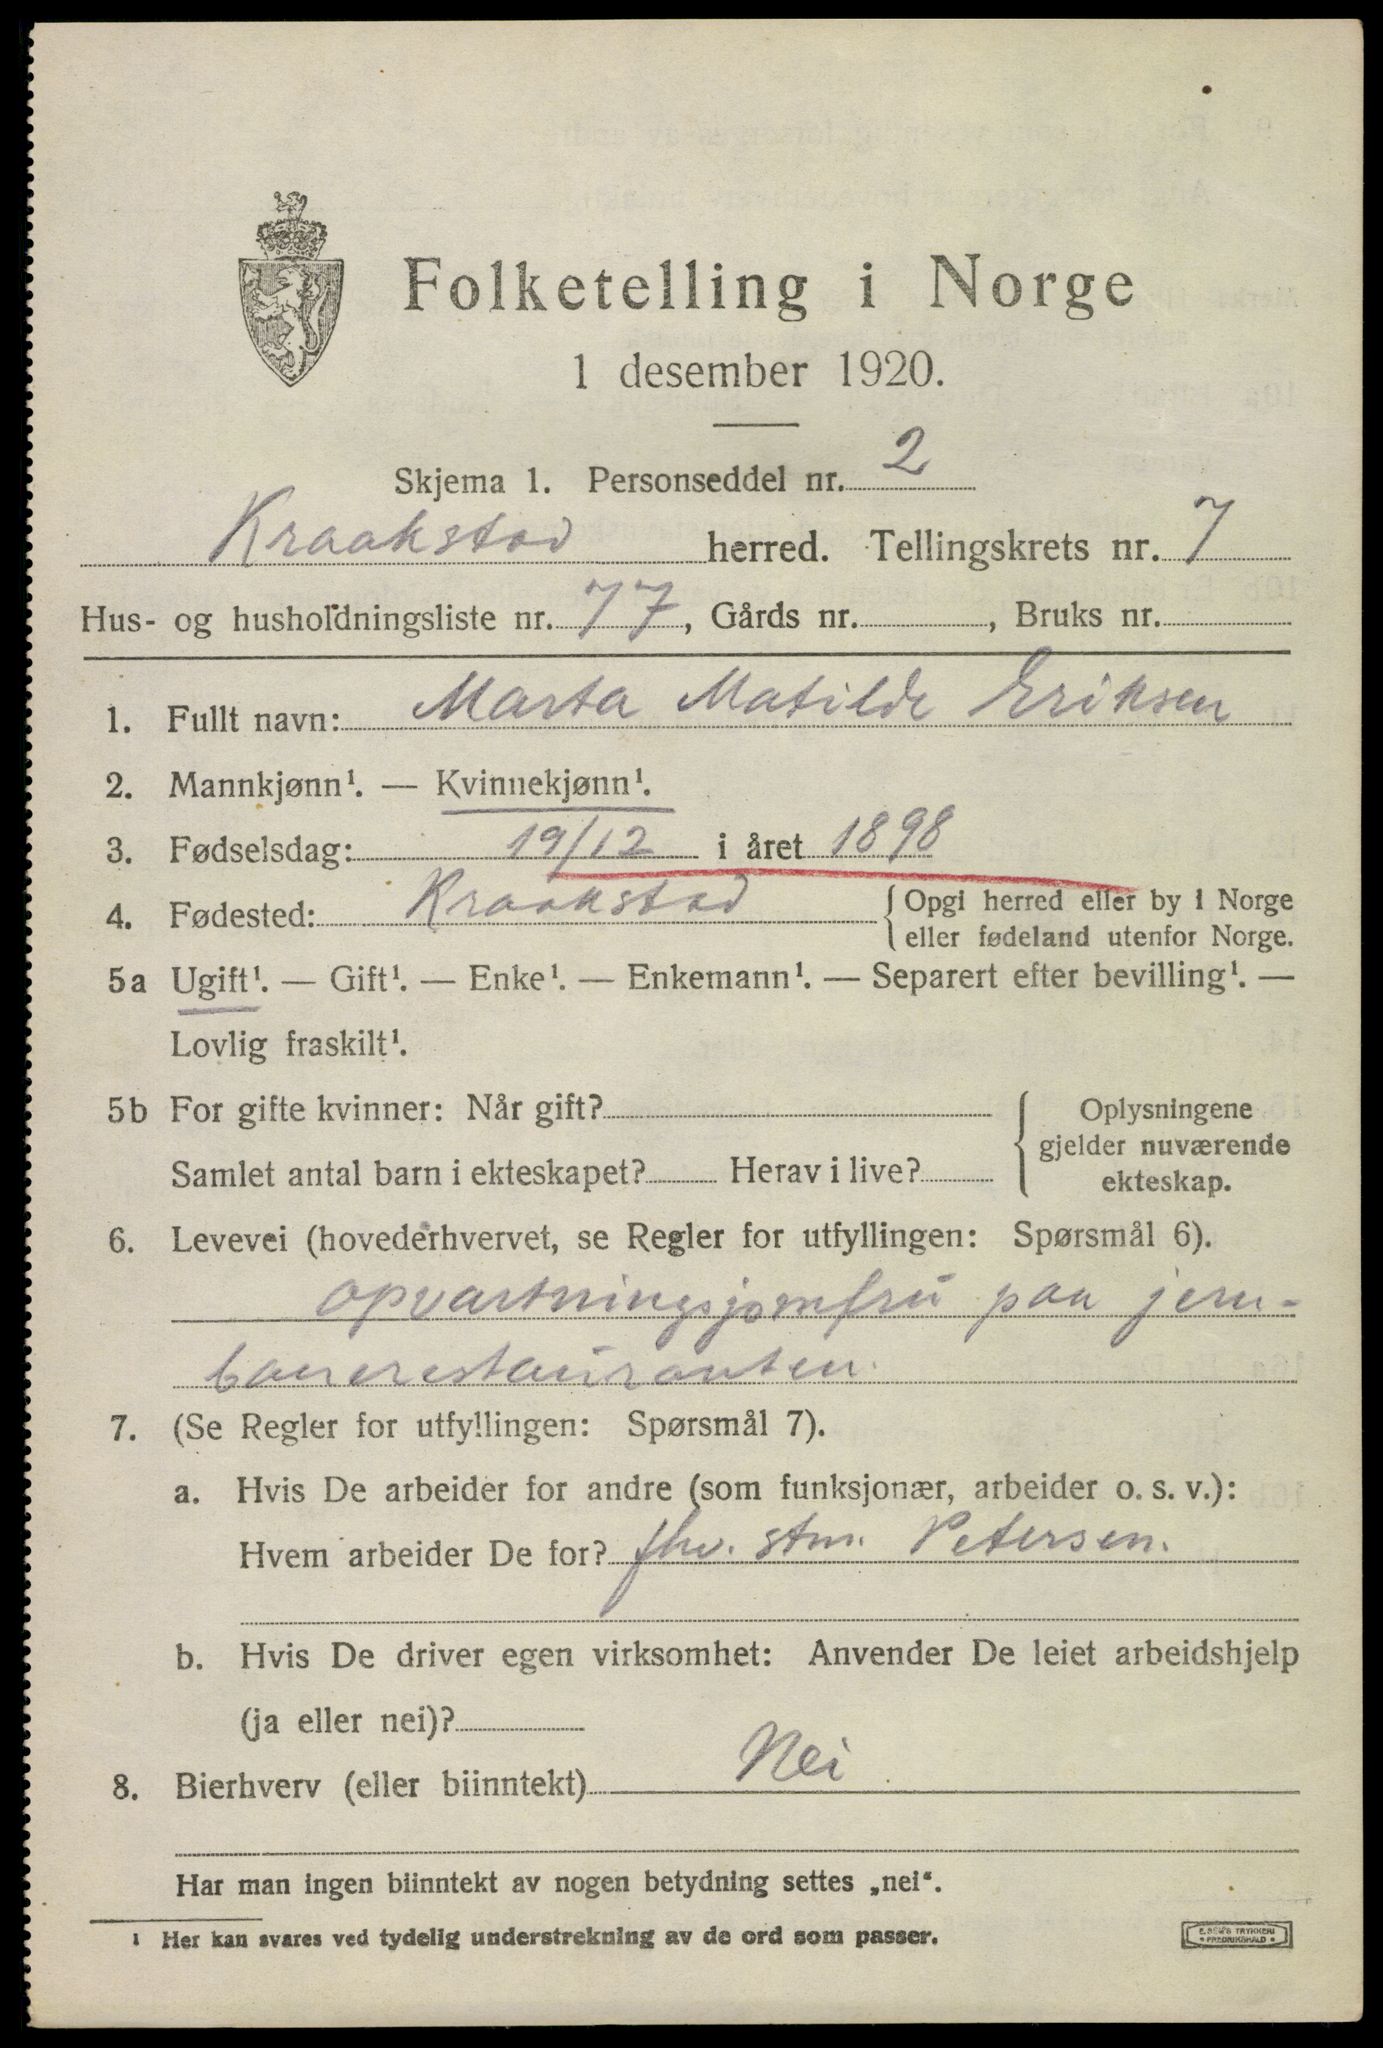 Folketelling i Norge
1 desember 1920.
Skjema 1. Personseddel nr. 2
Kraakstad herred. Tellingskrets nr. 7
Hus- og husholdningsliste nr. 77, Gårds nr. , Bruks nr.
1. Fullt navn: Marta Matilde Eriksen
2. Mannkjønn¹. — Kvinnekjønn¹.
3. Fødselsdag: 19/12 i året 1898
4. Fødested: Kraakstad {Opgi herred eller by i Norge
eller fødeland utenfor Norge.
5a Ugift¹. — Gift¹. — Enke¹. — Enkemann¹. — Separert efter bevilling¹. —
Lovlig fraskilt¹.
5b For gifte kvinner: Når gift?
Samlet antal barn i ekteskapet? Herav i live?
Oplysningene
gjelder nuværende
ekteskap.
6. Levevei (hovederhvervet, se Regler for utfyllingen: Spørsmål 6).
opvartningsjomfru paa jern-
banerestauranten.
7. (Se Regler for utfyllingen: Spørsmål 7).
a. Hvis De arbeider for andre (som funksjonær, arbeider o. s. v.):
Hvem arbeider De for? fhv. stm. Petersen.
b. Hvis De driver egen virksomhet: Anvender De leiet arbeidshjelp
(ja eller nei)?
8. Bierhverv (eller biinntekt) Nei
Har man ingen biinntekt av nogen betydning settes „nei“.
¹ Her kan svares ved tydelig understrekning av de ord som passer.
E. SEM'S TRYKKERI
FREDRIKSHALD